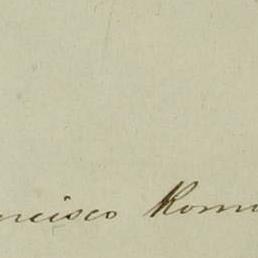 ncisco Rom